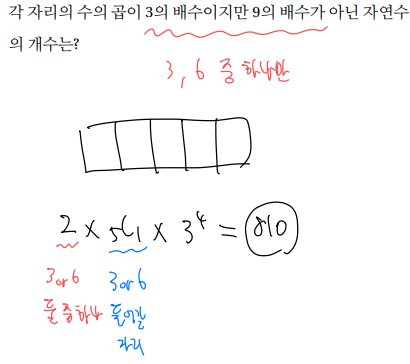 각 자리의 수의 곱이 3의 배수이지만 9의 배수가 아닌 자연수
의 개수는?
3, 6 중 하나만
2 × 5C1 × 3^4 = 810
3 or 6 3 or 6
둘 중 하나 들어갈
자리